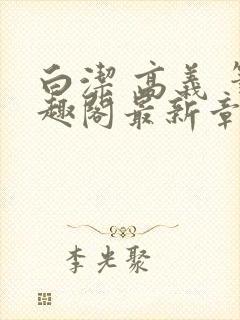 白潔 高義 笔
趣閣最新章
李光聚